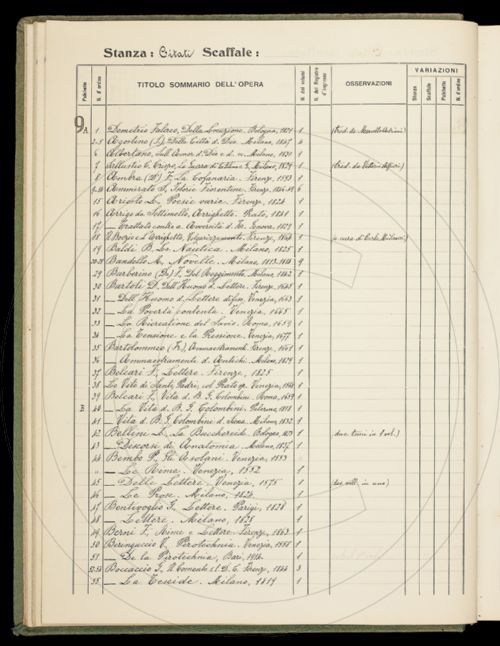 Stanza: Citati Scaffale:
Palchetto N. d'ordine TITOLO SOMMARIO DELL'OPERA N. dei volumi N. del Registro d'ingresso OSSERVAZIONI VARIAZIONI Stanza Scaffale Palchetto N. d'ordine
9A 1 Demetrio Falereo, Della Locuzione. Bologna, 1821 1
2-5 Agostino (S.), Della Città d'Dio. Milano, 4
6 Albertano, 1
7 Sallustio C. Crispo, 1
8 Ambra (D') F., La Cofanaria. Firenze, 1593 1
9-14 Ammirato S., Istorie Fiorentine. Firenze, 6
15 Ariosto L., Poesie varie. Firenze, 1824 1
16 Arrigo da Settimello, Arrighetto. Prato, 1841 1
17 — Trattato contro a Avversità d. Genova, 1
18 1 a cura di Carlo Milanesi)
19 Baldi B. La Nautica. Milano, 1
20-28 Bandello M., Novelle. Milano, 1813-1814 9
29 Barberino (Da) F., Del Reggimento. Milano, 1842 1
30 Bartoli D., Dell'Huomo d. Lettere. Firenze, 1
31 — Dell'Huomo d. Lettere Venezia, 1
32 — La Povertà contenta. Venezia, 1
33 — La Ricreatione del Savio. Roma, 1659 1
34 — La Tensione e la Pressione. Venezia, 1677 1
35 Bartolommeo (Fr.), Ammaestramenti. Firenze, 1661 1
36 — Ammaestramenti d. Antichi. Milano, 1829 1
37 Belcari F., Lettere. Firenze, 1825 1
38 La Vita di Santi Padri, Venezia, 1
39 Belcari F., Vita d. B. G. Colombini. Roma, 1659 1
B 40 — La Vita d. B. G. Colombini. Palermo, 1818 1
41 — Vita d. B. G. Colombini d. Siena. Milano, 1832 1
42 Bellini L., La Bucchereide. Bologna, 1 due tomi in 1 vol.)
43 — Discorsi di Anatomia. Milano, 1837 1
44 Bembo P., Gli Asolani. Venezia, 1553 1
" — Le Rime. Venezia, 1552 1
45 — Delle Lettere. Venezia, 1575 1 in uno)
46 — Le Prose. Milano, 1824 1
47 Bentivoglio G., Lettere. Parigi, 1828 1
48 — Lettere. Milano, 1828 1
49 Berni F., Rime e Lettere. Firenze, 1
50 Biringuccio V., Pirotechnia. Venezia, 1558 1
51 — De la Pirotechnia, Bari, 1914 1
52-54 Boccaccio G., Il Comento s. l. D. C. Firenze, 1844 3
55 — La Teseide. Milano, 1819 1